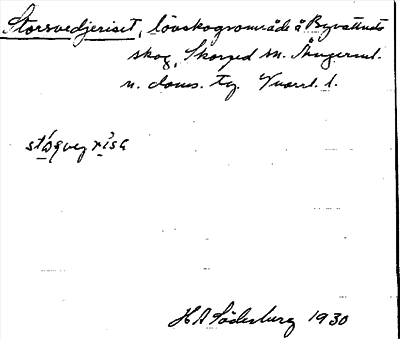 Storsvedjeriset, lövskogsområde å Byvattnets
skog, Skorped sn. Ångerml.
n. doms. tg. Vnorrl. l.
H A Söderberg 1930